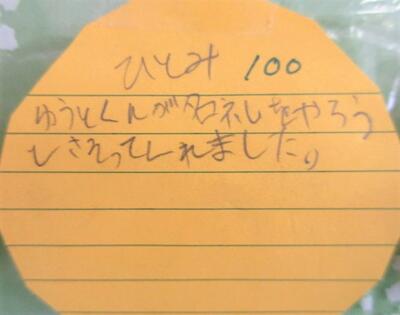 ひとみ 100
ゆうとくんが名ネしをやろう
とさそってくれました。